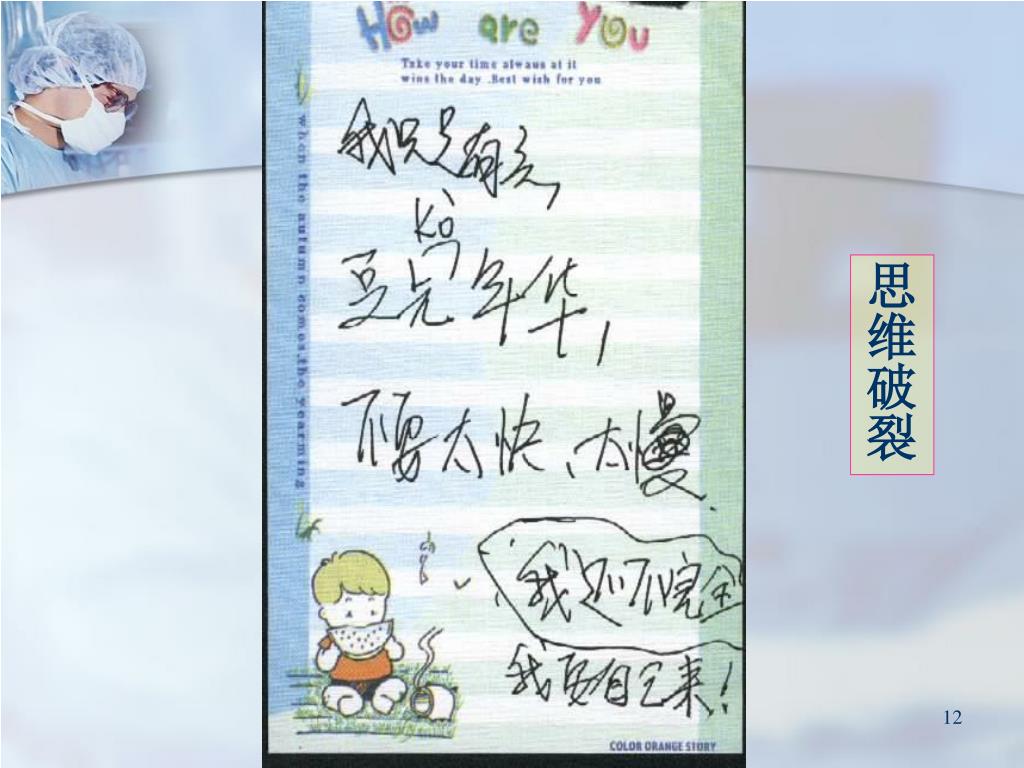 How are You
Take your time always at it
wins the day .Best wish for you
when the autumn comes,the yearning
我只是有之,
kǒ
豆蔻年华,
不要太快、太慢.
我还不完全
我要自己来!
COLOR ORANGE STORY
思维破裂
12